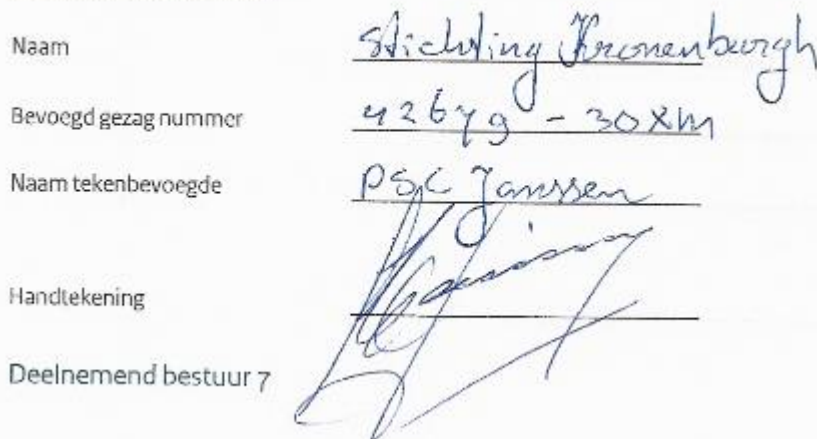 Naam Stichting Kronenburgh
Bevoegd gezag nummer 42679 - 30XM
Naam tekenbevoegde PSC Janssen
Handtekening
Deelnemend bestuur 7